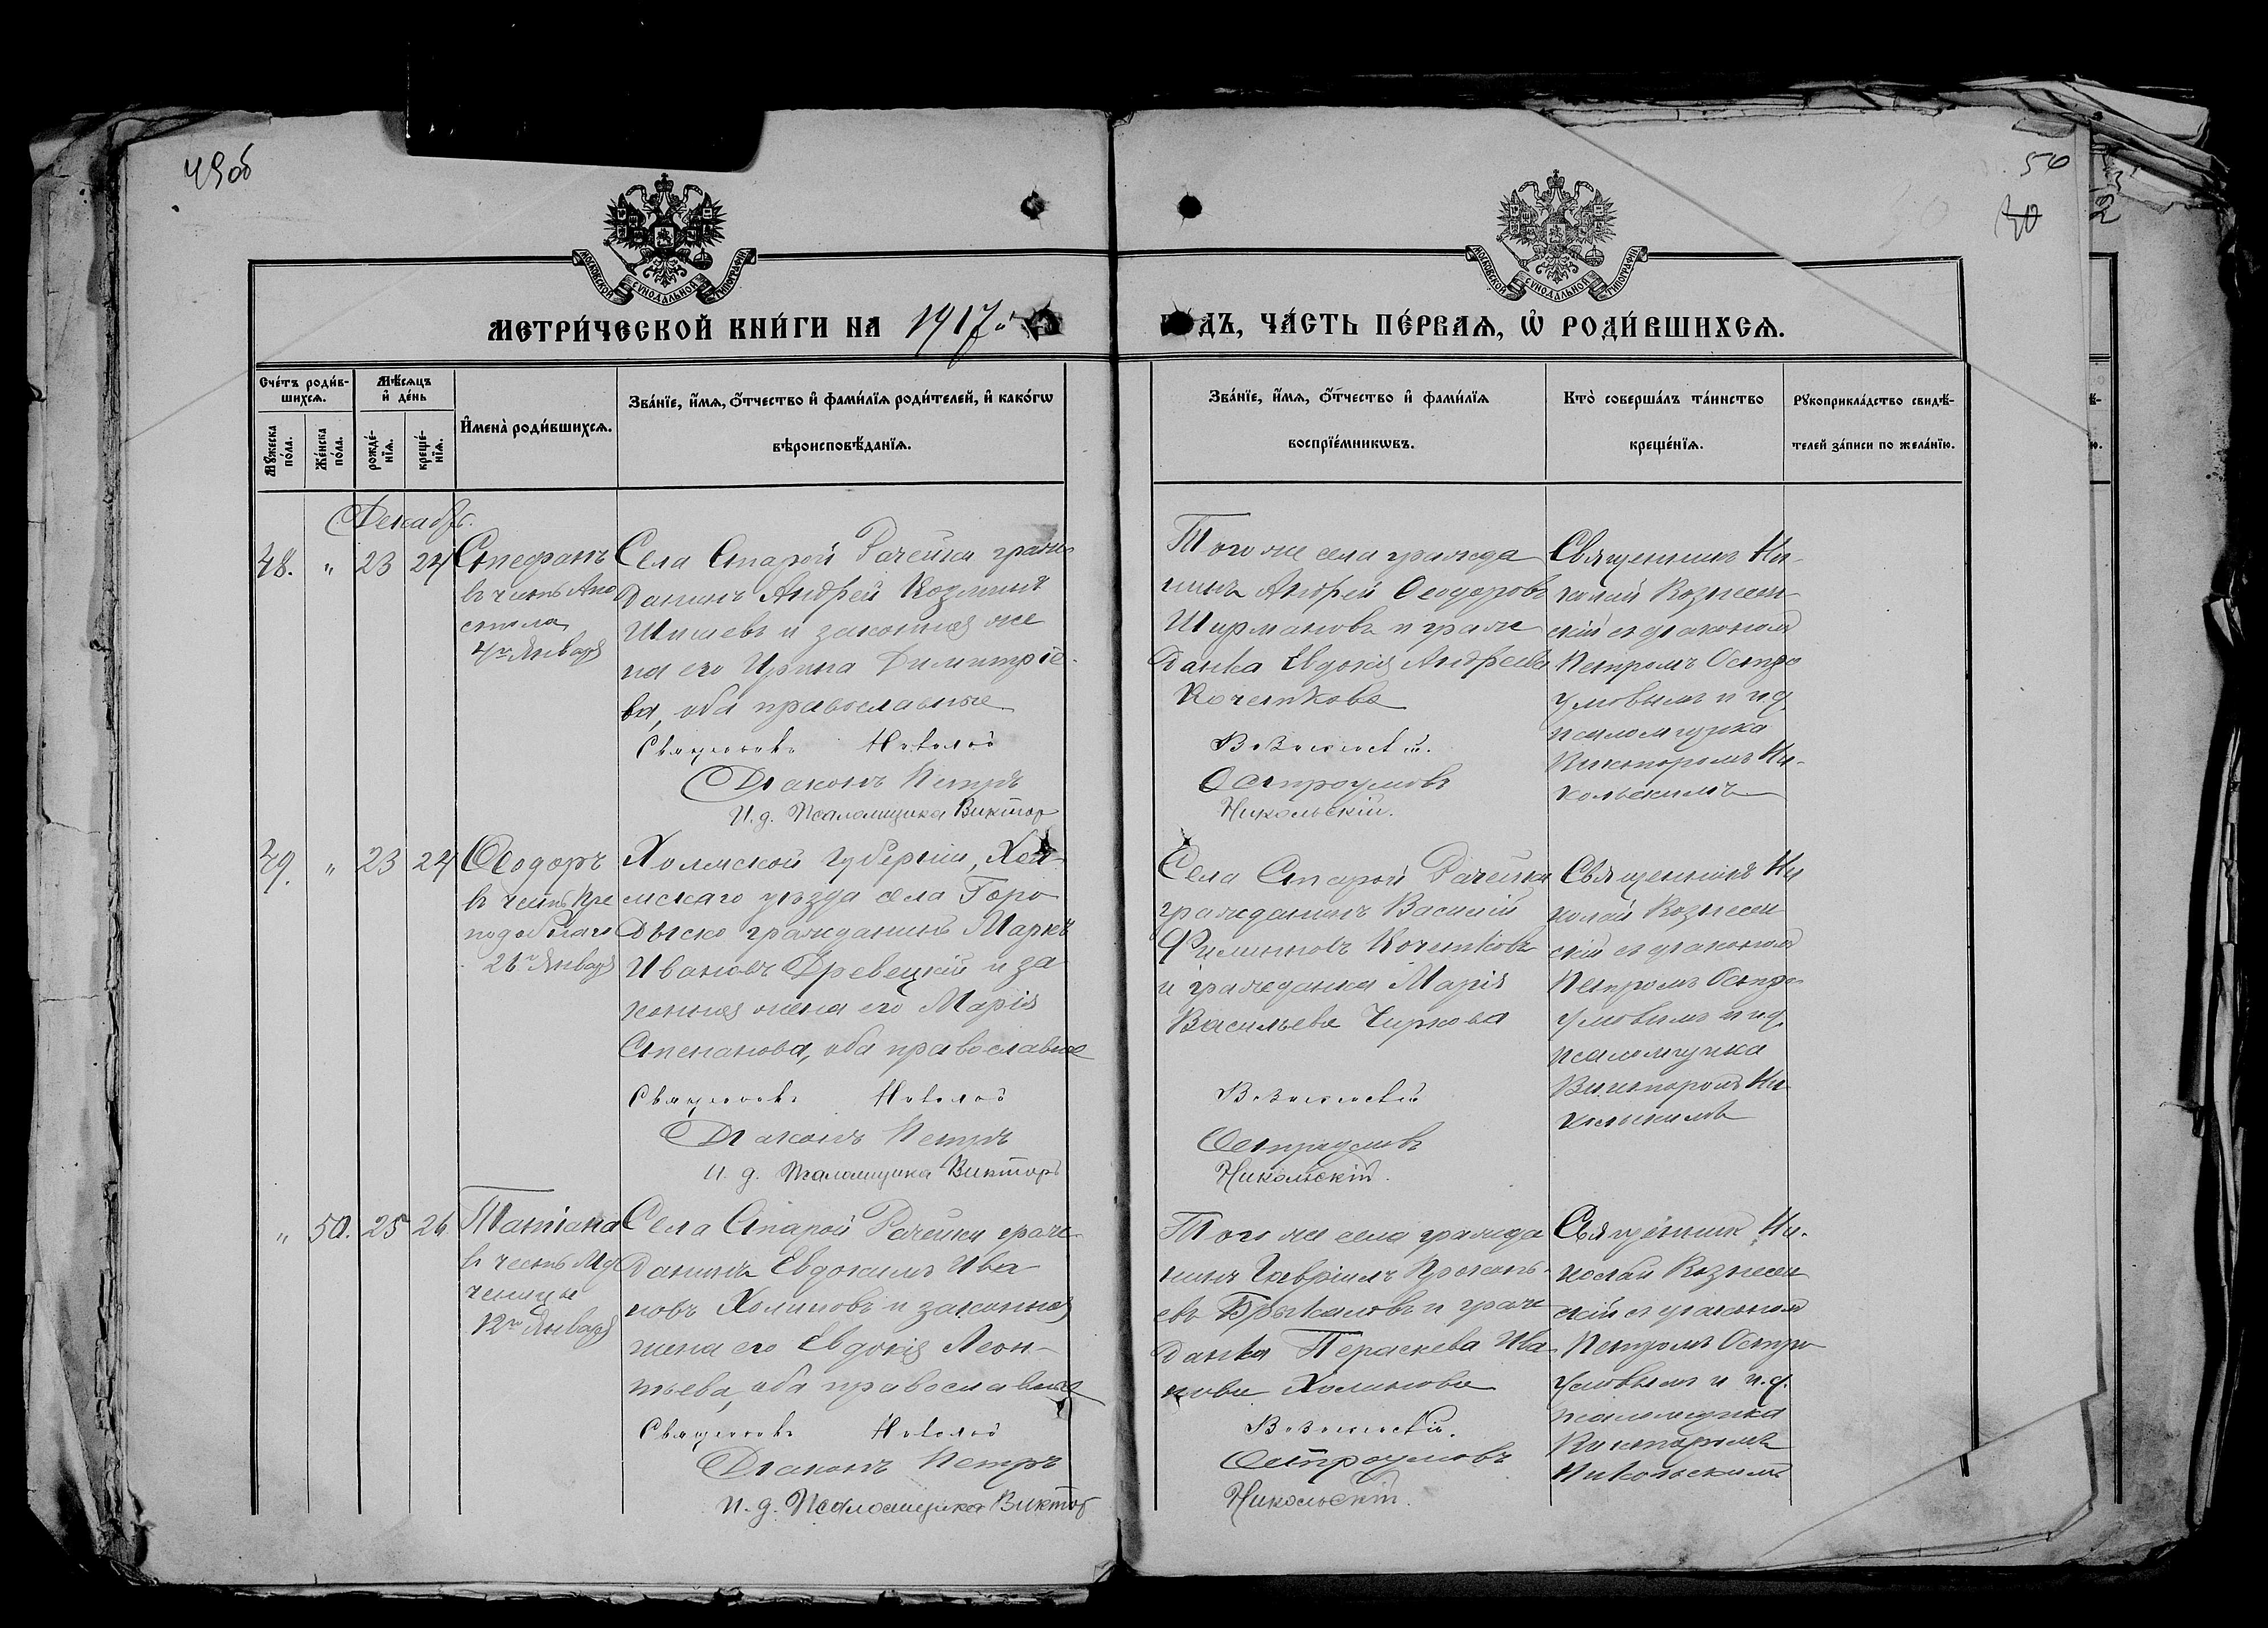 49об
50
40
МОСКОВСКОЙ СѴНОДАЛЬНОЙ ТИПОГРАФІИ
МОСКОВСКОЙ СѴНОДАЛЬНОЙ ТИПОГРАФІИ
МЕТРИ́ЧЕСКОЙ КНИ́ГИ НА 1917й
ДЪ, ЧА́СТЬ ПЕ́РВАѦ, Ѡ҆ РОДИ́ВШИХСѦ.
Сче́тъ роди́в-
шихсѧ.
Мѣ́сѧцъ
и҆ де́нь
И҆мена̀ роди́вшихсѧ.
Зва́нїе, и҆́мѧ, ѻ҆́тчество и҆ фами́лїѧ роди́телей, и҆ како́гѡ
вѣроисповѣ́данїѧ.
Мꙋ́жеска
по́ла.
Же́нска
по́ла.
рожде́-
нїѧ.
креще́-
нїѧ.
Зва́нїе, и҆́мѧ, ѻ҆́тчество и҆ фами́лїѧ
воспрїе́мникѡвъ.
Кто̀ соверша́лъ та́инство
креще́нїѧ.
Рꙋкоприкла́дство свидѣ́-
телей за́писи по жела́нїю.
Декабрь.
48. " 23 24
Стефанъ
въ честь Апо
стола
4го Января
Села Старой Рачейки граж
данинъ Андрей Козминъ
Шишевъ и законная же
на его Ирина Димитріе-
ва, оба православные
Священникъ Николай
Діаконъ Петръ
И.д. Псаломщика Виктор
Того же села гражда
нинъ Андрей Ѳеодоровъ
Ширмановъ и граж
данка Евдокія Андреева
Кочеткова
Вознесенскій.
Остроумовъ
Никольскій.
Священникъ Ни-
колай Вознесен-
скій съ діакономъ
Петромъ Остро
умовымъ и и.д.
псаломщика
Викторомъ Ни-
кольскимъ
49. " 23 24
Ѳеодоръ
въ честь Пре
подобнаго
Января
Холмской губерніи, Хол-
мскаго уѣзда села Горо
дыско гражданинъ Маркъ
Ивановъ Древецкій и за
конная жена его Марія
Степанова, оба православные
Священникъ Николай
Діаконъ Петръ
И.д. Псаломщика Викторъ
Села Старой Рачейки
гражданинъ Василій
Филипповъ Кочетковъ
и гражданка Марія
Васильева Чиркова
Вознесенскій
Остроумовъ
Никольскій.
Священникъ Ни
колай Вознесен
скій съ діакономъ
Петромъ Остро-
умовымъ и и.д.
псаломщика
Викторомъ Ни
кольскимъ
" 50. 25 26
Татіана
въ честь Му
ченицы
12го Января
Села Старой Рачейки граж
данинъ Евдокимъ Ива
новъ Холиновъ и законная
жена его Евдокія Леон-
тьева, оба православные
Священникъ Николай
Діаконъ Петръ
И.д. Псаломщика Виктор
Того же села гражда
нинъ Гавріилъ
евъ и граж
данка Параскева Ива
нова Холинова
Вознесенскій.
Остроумовъ
Никольскій.
Священник Ни-
колай Вознесен
скій съ діакономъ
Петромъ Остро
умовымъ и и.д.
псаломщика
Викторомъ
Никольскимъ